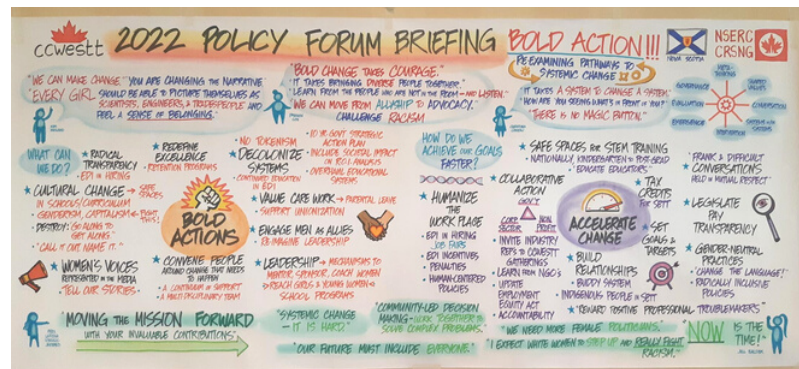 ccwestt
2022 POLICY FORUM BRIEFING
BOLD ACTION!!!
NOVA SCOTIA
NSERC
CRSNG
"WE CAN MAKE CHANGE." "YOU ARE CHANGING THE NARRATIVE"
"EVERY GIRL SHOULD BE ABLE TO PICTURE THEMSELVES AS
SCIENTISTS, ENGINEERS, & TRADESPEOPLE AND
FEEL A SENSE OF BELONGING."
"BOLD CHANGE TAKES COURAGE."
"IT TAKES BRINGING DIVERSE PEOPLE TOGETHER."
"LEARN FROM THE PEOPLE WHO ARE NOT IN THE ROOM — AND LISTEN."
"WE CAN MOVE FROM ALLYSHIP TO ADVOCACY.
CHALLENGE RACISM
RE-EXAMINING PATHWAYS TO
SYSTEMIC CHANGE
"IT TAKES A SYSTEM TO CHANGE A SYSTEM."
"HOW ARE YOU SEEING WHAT'S IN FRONT OF YOU?"
"THERE IS NO MAGIC BUTTON."
GOVERNANCE
EVALUATION
EMERGENCE
SHARED
VALUES
CONVERSATION
WHAT CAN
WE DO?
★ RADICAL
TRANSPARENCY
- EDI IN HIRING
★ CULTURAL CHANGE → SAFE
SPACES
IN SCHOOLS/CURRICULUM
- GENDERISM, CAPITALISM ← FIGHT
THIS!
- DESTROY: GO ALONG TO
GET ALONG
- 'CALL IT OUT. NAME IT.'
★ WOMEN'S VOICES
REPRESENTED IN THE MEDIA
- TELL OUR STORIES -
★ REDEFINE
EXCELLENCE
- RETENTION PROGRAMS
BOLD
ACTIONS
★ CONVENE PEOPLE
AROUND CHANGE THAT NEEDS
TO HAPPEN
- A CONTINUUM OF SUPPORT
- A MULTI DISCIPLINARY TEAM
- NO TOKENISM
★ DECOLONIZE
SYSTEMS
- CONTINUED EDUCATION
IN EDI
- EDI OR GOV'T STRATEGIC
ACTION PLAN
- INCLUDE SOCIETAL IMPACT
ON R.O.I. ANALYSIS
- OVERHAUL EDUCATIONAL
SYSTEMS
★ VALUE CARE WORK → PARENTAL LEAVE
- SUPPORT UNIONIZATION
★ ENGAGE MEN AS ALLIES
- RE-IMAGINE LEADERSHIP
★ LEADERSHIP → MECHANISMS TO
MENTOR, SPONSOR, COACH WOMEN
→ REACH GIRLS & YOUNG WOMEN ←
SCHOOL PROGRAMS
HOW DO WE
ACHIEVE OUR GOALS
FASTER?
★ HUMANIZE
THE
WORK PLACE
- EDI IN HIRING
JOB FAIRS
- EDI INCENTIVES
- PENALTIES
- HUMAN-CENTERED
POLICIES
★ SAFE SPACES FOR STEM TRAINING
- NATIONALLY, KINDERGARTEN TO POST-GRAD
- 'EDUCATE EDUCATORS'
★ COLLABORATIVE
ACTION
GOV'T
CORP.
SECTOR
NON
PROFIT
- INVITE INDUSTRY
REPS TO CCWESTT
GATHERINGS
- LEARN FROM NGO'S
- UPDATE
EMPLOYMENT
EQUITY ACT
- ACCOUNTABILITY
ACCELERATE
CHANGE
★ TAX
CREDITS
FOR SETT
★ SET
GOALS &
TARGETS
★ BUILD
RELATIONSHIPS
- BUDDY SYSTEM
- INDIGENOUS PEOPLE IN SETT
★ 'REWARD POSITIVE PROFESSIONAL TROUBLEMAKERS'
"FRANK & DIFFICULT
★ CONVERSATIONS
HELD IN MUTUAL RESPECT"
★ LEGISLATE
PAY
TRANSPARENCY
★ GENDER-NEUTRAL
PRACTICES
- 'CHANGE THE LANGUAGE!'
- RADICALLY INCLUSIVE
POLICIES
"MOVING THE MISSION FORWARD
WITH YOUR INVALUABLE CONTRIBUTIONS"
"SYSTEMIC CHANGE
- IT IS HARD."
"COMMUNITY-LED DECISION
MAKING - WORK TOGETHER TO
SOLVE COMPLEX PROBLEMS."
"OUR FUTURE MUST INCLUDE EVERYONE."
"WE NEED MORE FEMALE POLITICIANS."
"I EXPECT WHITE WOMEN TO STEP UP AND REALLY FIGHT
RACISM."
"NOW IS THE
TIME!"